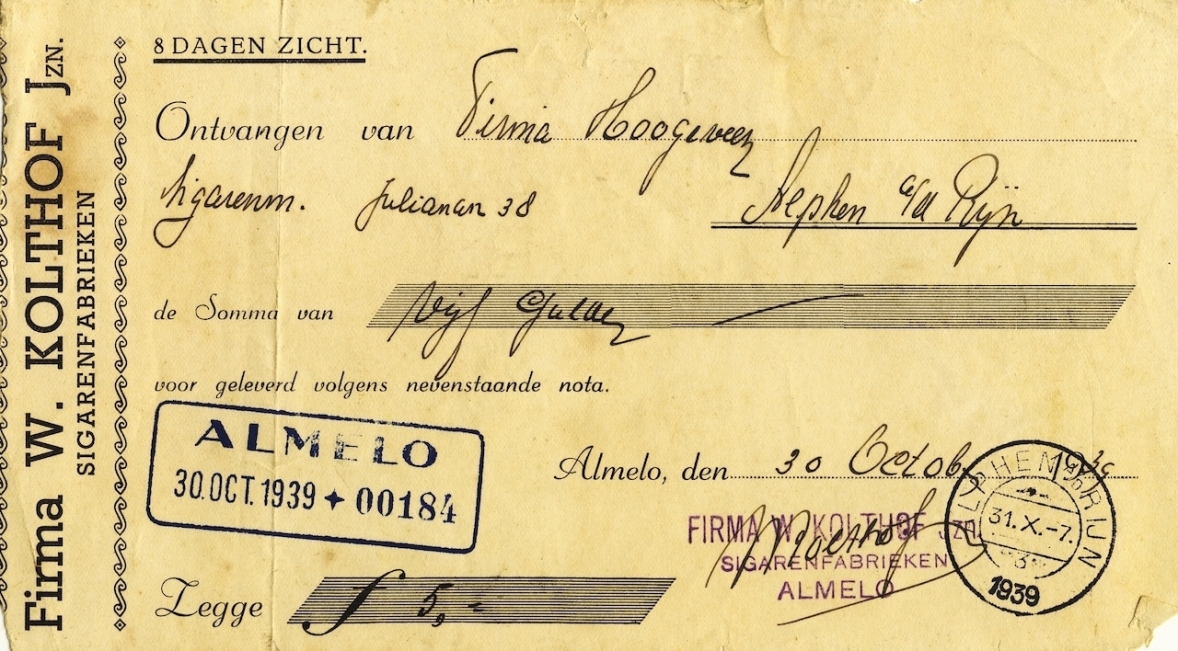 Firma W. KOLTHOF JZN.
SIGARENFABRIEKEN
8 DAGEN ZICHT.
Ontvangen van Firma Hoogeveen
Sigarenm. Julianan 38 Alephen a/d Rijn
de Somma van Vijf Gulden
voor geleverd volgens nevenstaande nota.
ALMELO
30.OCT.1939 00184
Almelo, den 30 October 1939
FIRMA W. KOLTHOF JZN.
SIGARENFABRIEKEN
ALMELO
ALPHEN RIJN
31.X.-7.
3
1939
Zegge f 5,-